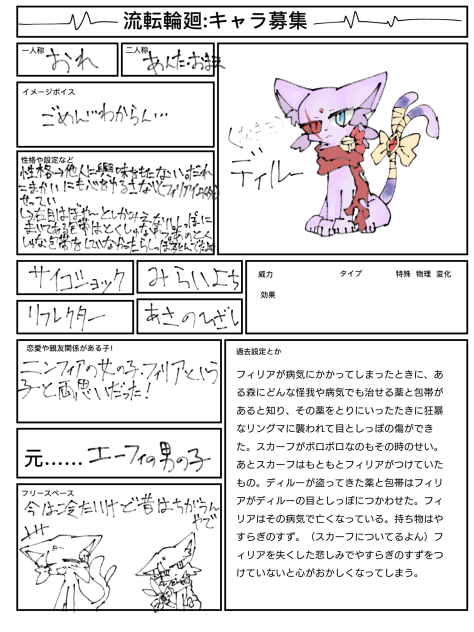 流転輪廻:キャラ募集
一人称
おれ
二人称
あんた・おまえ
イメージボイス
ごめんわからん…
(なまえ)
ディルー
性格や設定など
性格→他人に興味をもたない。だれ
にも心をゆるさない(フィリア
サイコショック
みらいよち
リフレクター
あさのひざし
威力
タイプ
特殊 物理 変化
効果
恋愛や親友関係がある子!
ニンフィアの女の子・フィリアという
子と両思いだった!
元……エーフィの男の子
フリースペース
今は冷たいけど昔はちがうん
やで
過去設定とか
フィリアが病気にかかってしまったときに、あ
る森にどんな怪我や病気でも治せる薬と包帯が
あると知り、その薬をとりにいったたきに狂暴
なリングマに襲われて目としっぽの傷ができ
た。スカーフがボロボロなのもその時のせい。
あとスカーフはもともとフィリアがつけていた
もの。ディルーが盗ってきた薬と包帯はフィリ
アがディルーの目としっぽにつかわせた。フィ
リアはその病気で亡くなっている。持ち物はや
すらぎのすず。（スカーフについてるよん）フ
ィリアを失くした悲しみでやすらぎのすずをつ
けていないと心がおかしくなってしまう。